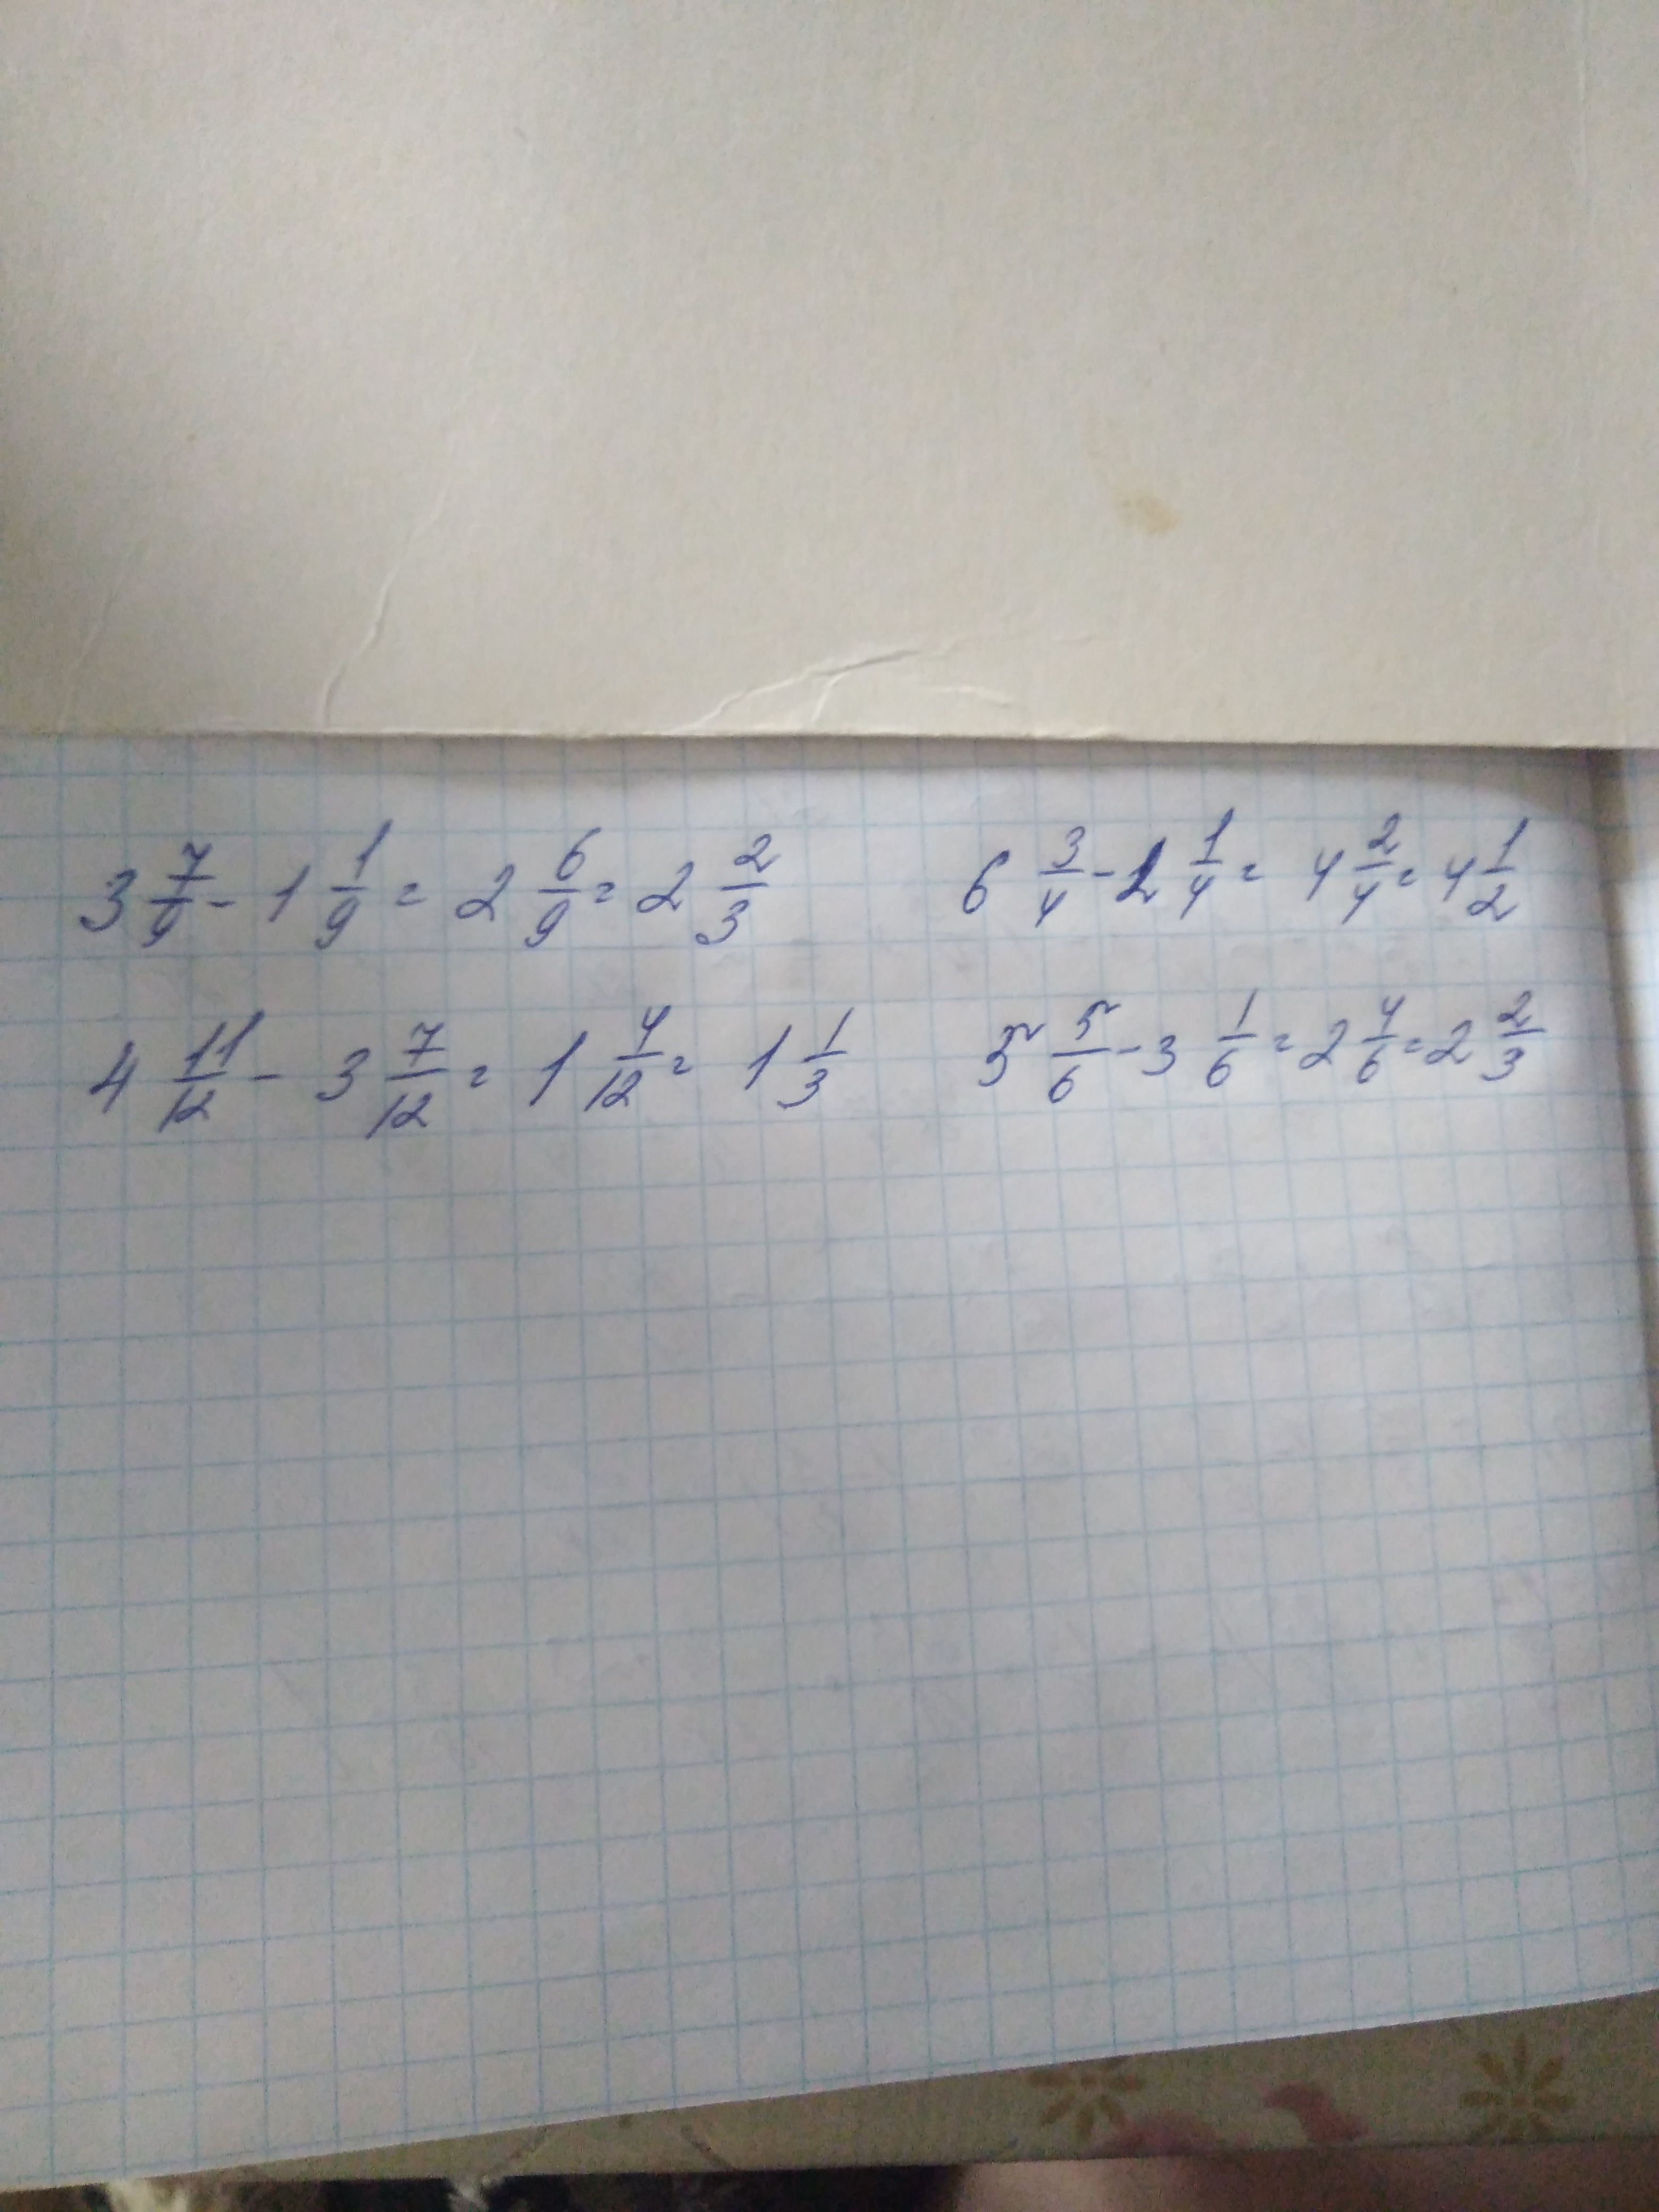 3 7/9 - 1 1/9 = 2 6/9 = 2 2/3
6 3/4 - 2 1/4 = 4 2/4 = 4 1/2
4 11/12 - 3 7/12 = 1 4/12 = 1 1/3
5 5/6 - 3 1/6 = 2 4/6 = 2 2/3